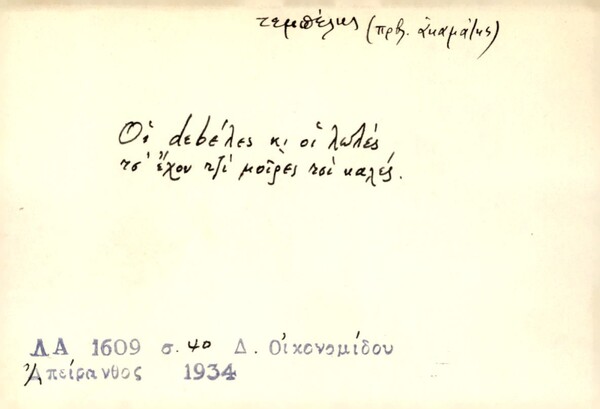 τεμπέλης (πρβ. ἀκαμάτης)
Οἱ dεbέλες κι οἱ λωλές
τσ' ἔχου τζὶ μοῖρες τσὶ καλές.
ΛΑ 1609 σ. 40 Δ. Οἰκονομίδου
Ἀπείρανθος 1934